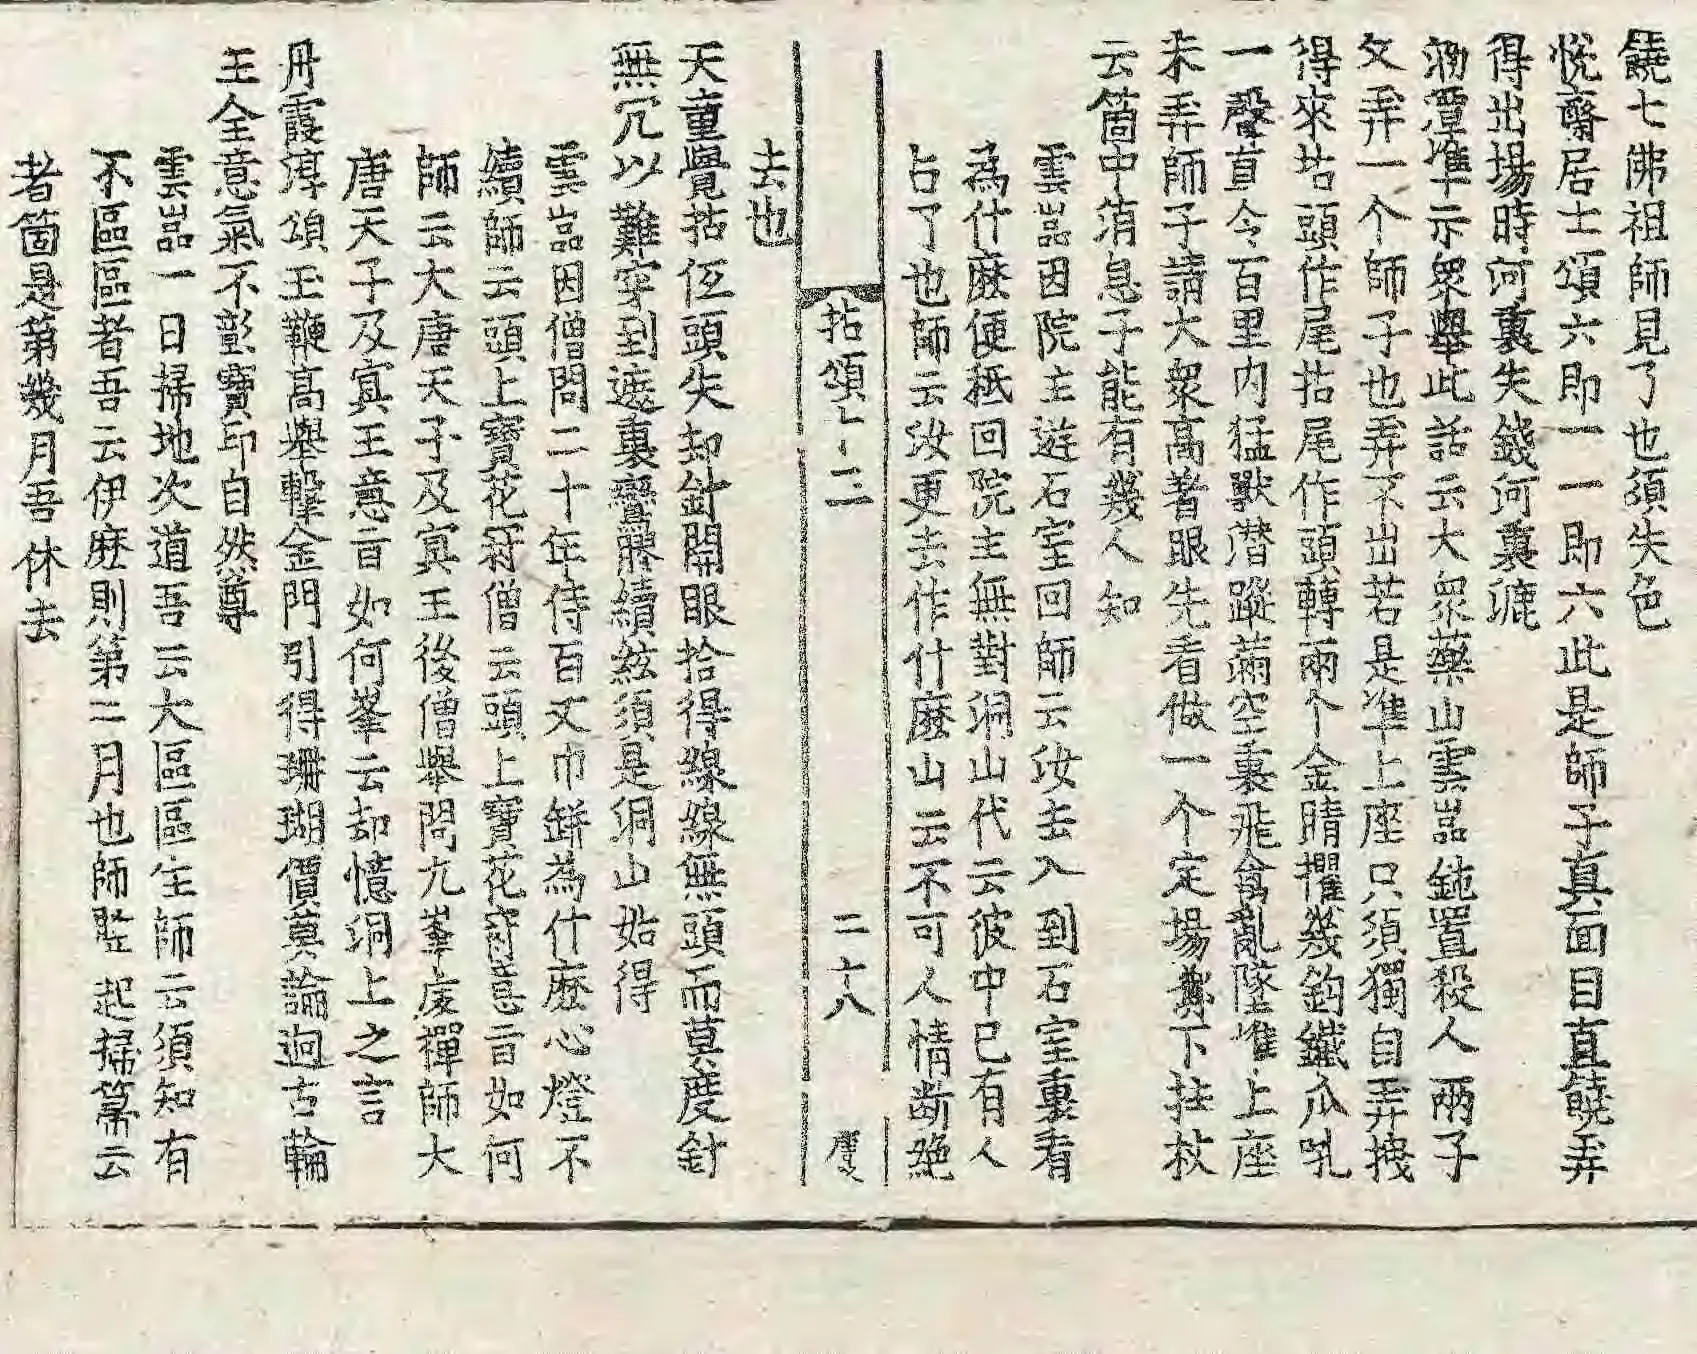 饒七佛祖師見了也須失色
悅齋居士頌六即一一即六此是師子真面目直饒弄
得出場時何裏失錢何裏漉
泐潭準示眾舉此話云大眾藥山雲嵓鈍置殺人兩子
父弄一个師子也弄不出若是準上座只須獨自弄拽
得來拈頭作尾拈尾作頭轉兩个金睛攞幾鈎鐵爪吼
一聲直令百里內猛獸潛蹤滿空裏飛禽亂墜準上座
未弄師子請大眾高著眼先看做一个定場擲下拄杖
云箇中消息子能有幾人知
雲嵓因院主遊石室回師云汝去入到石室裏看
為什麼便秖回院主無對洞山代云彼中已有人
占了也師云汝更去作什麼山云不可人情断絕
拈頌上二 二十八
去也
天童覺拈伍頭失却針開眼拾得線線無頭而莫度針
無冗以難穿到遮裏鸞膠續絃須是洞山始得
雲嵓因僧問二十年侍百丈巾缾為什麼心燈不
續師云頭上寶花冠僧云頭上寶花冠意旨如何
師云大唐天子及冥王後僧舉問九峯虔禪師大
唐天子及冥王意旨如何峯云却憶洞上之言
丹霞淳頌玉鞭高舉擊金門引得珊瑚價莫論迴古輪
王全意氣不彰寶印自然尊
雲嵓一日掃地次道吾云大區區生師云須知有
不區區者吾云伊麽則第二月也師竪起掃箒云
者箇是第幾月吾休去